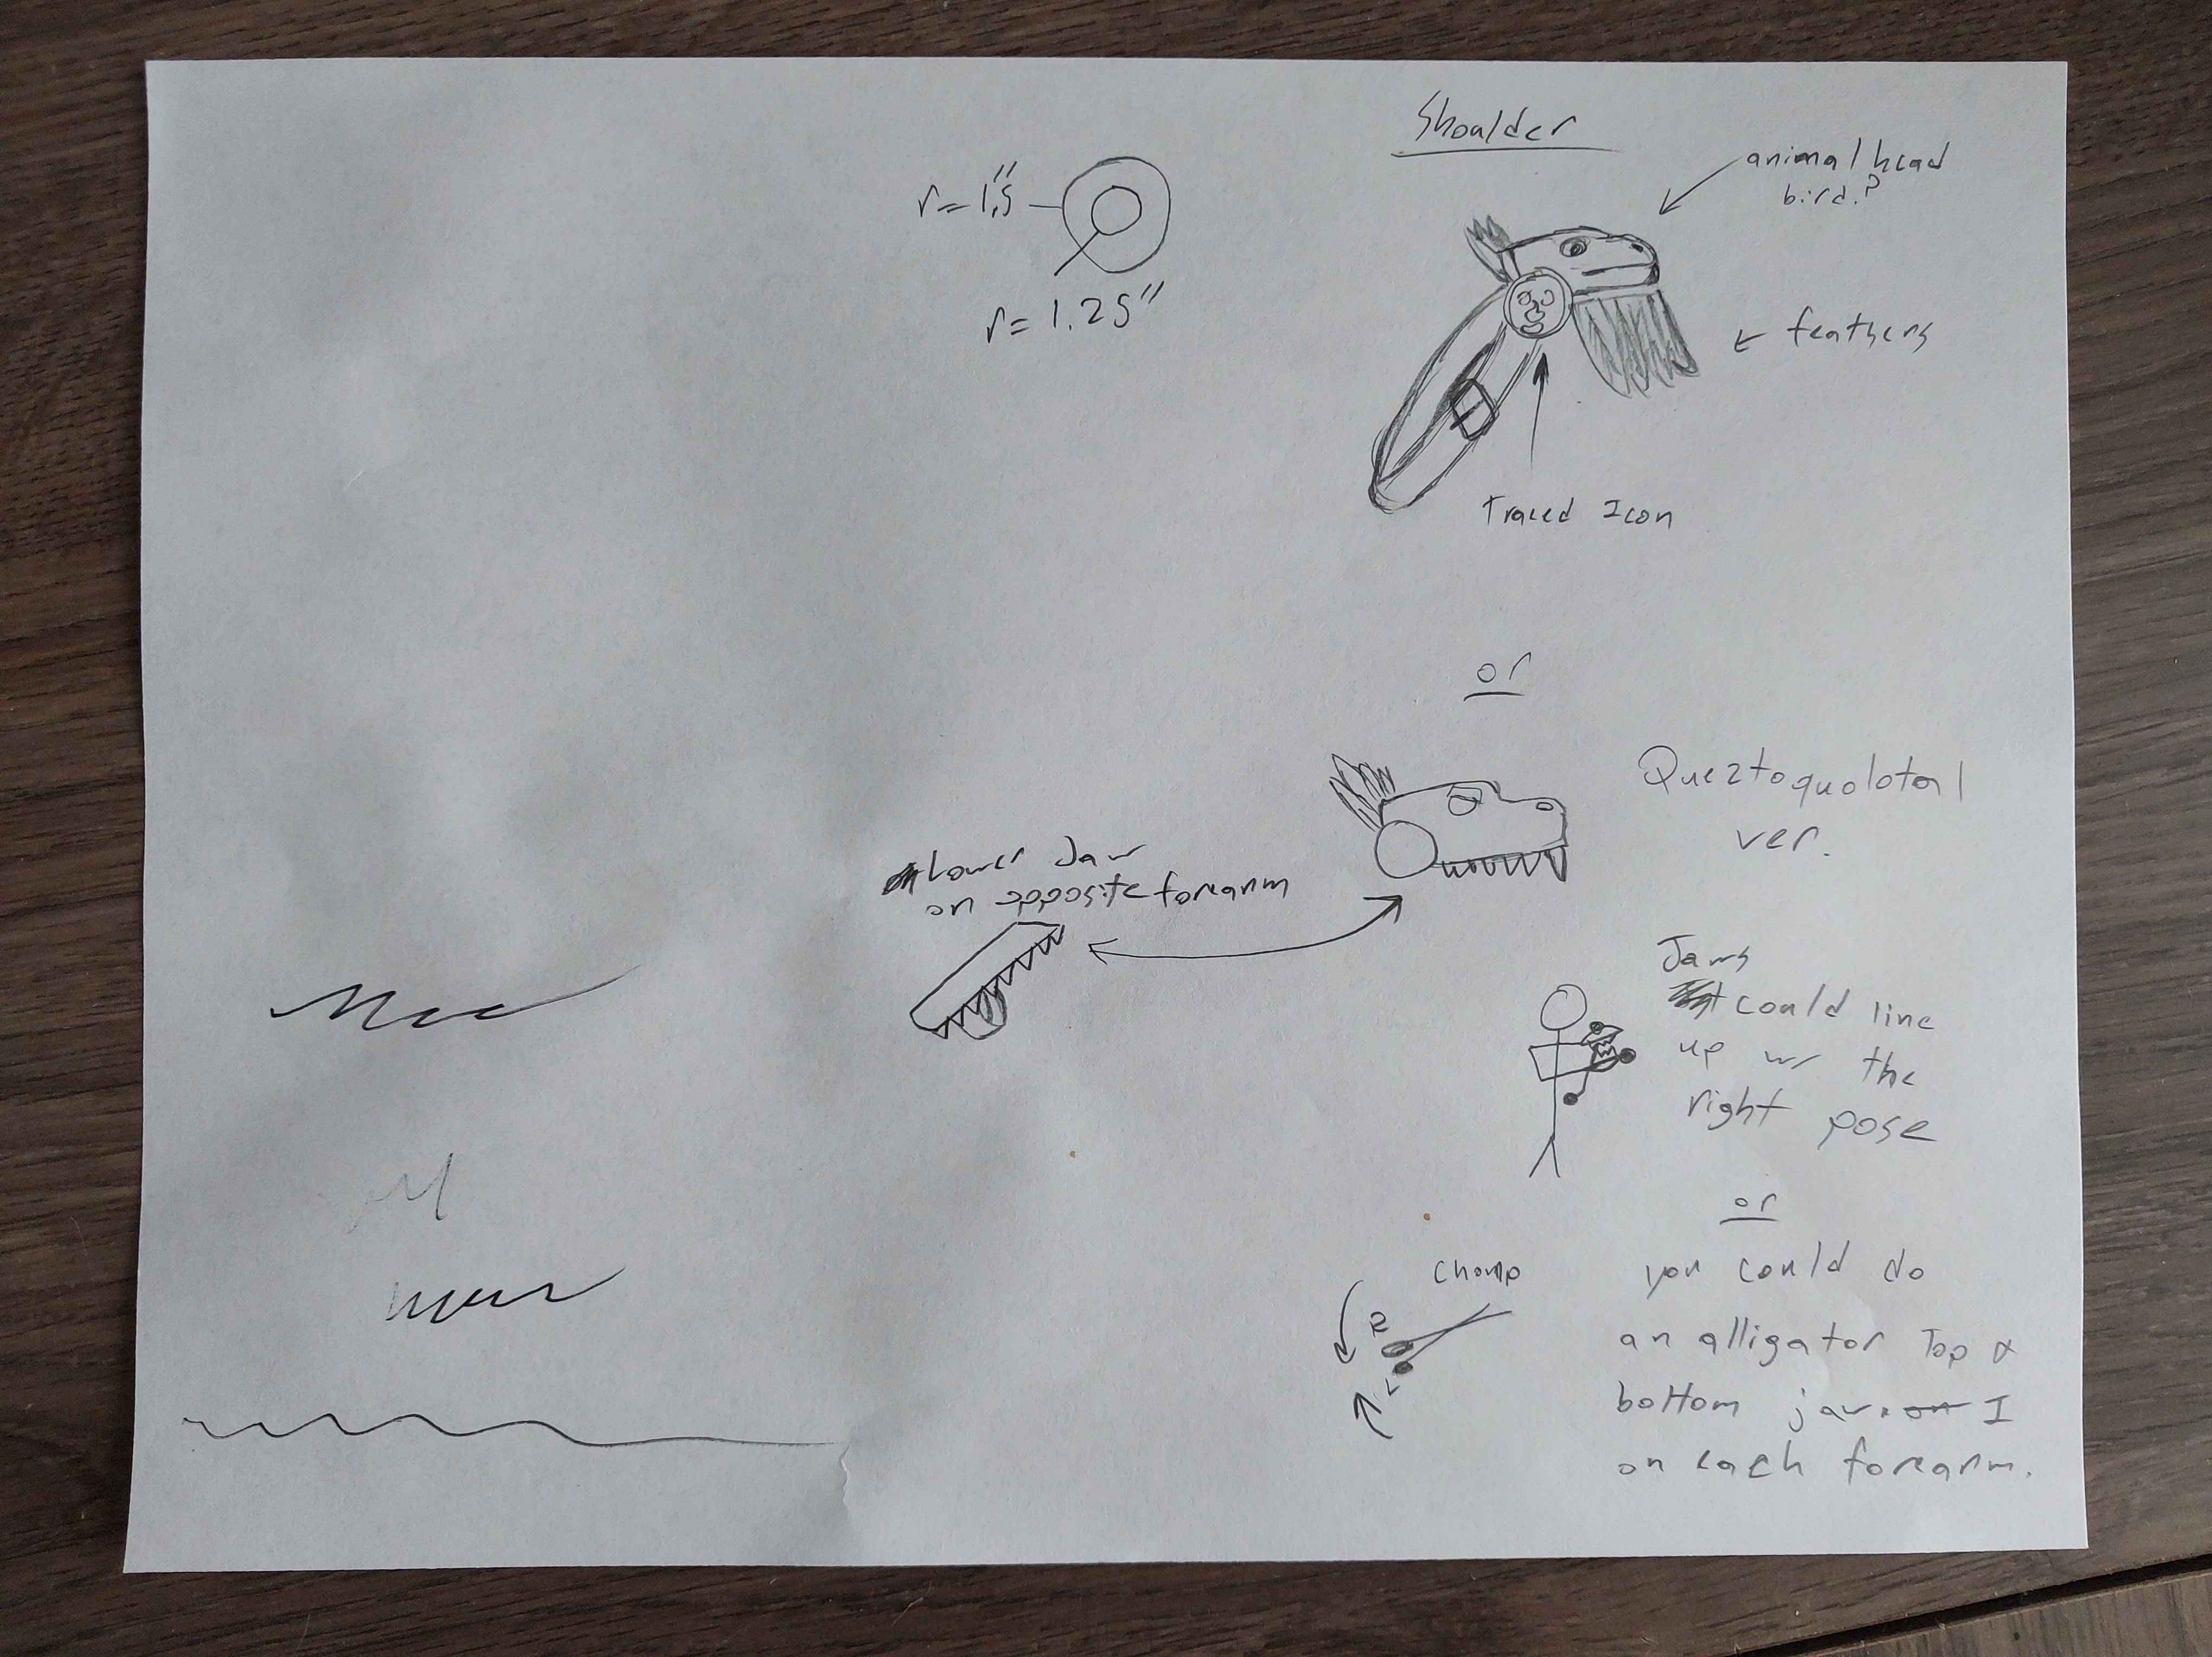 Shoulder
animal head
bird?
r=1.5"
r=1.25"
feathers
Traced Icon
or
Queztoquolotal
ver.
Lower Jaw
on opposite forearm
Jaws
could line
up w/ the
right pose
or
Chomp
you could do
an alligator Top &
bottom jaw. on I
on each forearm.
R
L